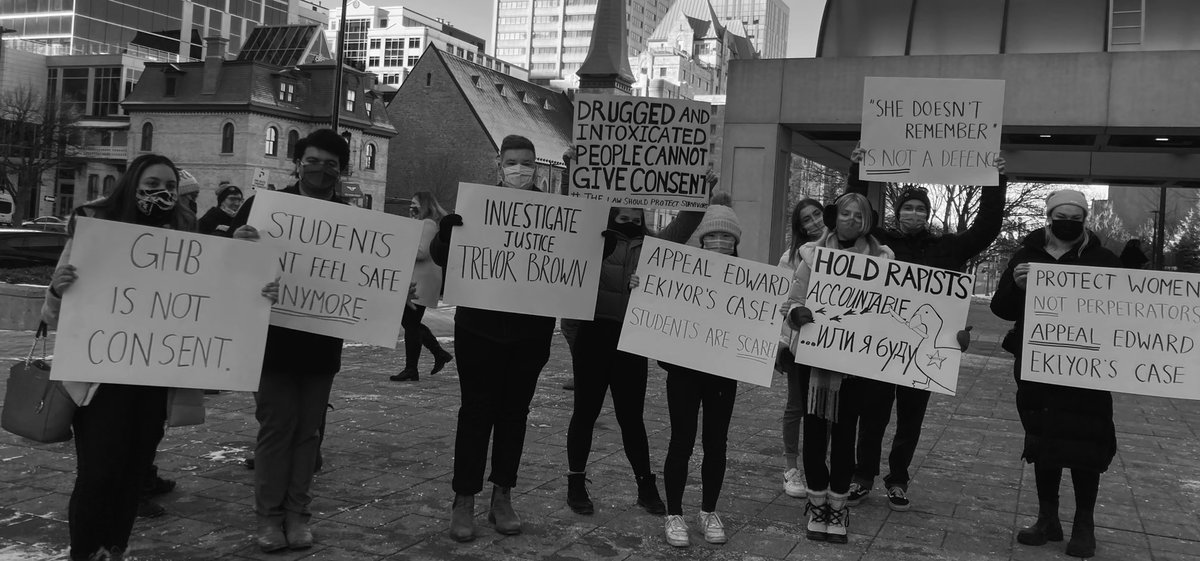 GHB
IS NOT
CONSENT.
STUDENTS
FEEL SAFE
NYMORE.
INVESTIGATE
JUSTICE
TREVOR BROWN
DRUGGED AND
INTOXICATED
PEOPLE CANNOT
GIVE CONSENT
THE LAW SHOULD PROTECT SURVIVORS
APPEAL EDWARD
EKIYOR'S CASE!
STUDENTS ARE SCARED
"SHE DOESN'T
REMEMBER"
IS NOT A DEFENCE
HOLD RAPISTS
ACCOUNTABLE
...ИЛИ Я БУДУ
PROTECT WOMEN
NOT PERPETRATORS
APPEAL EDWARD
EKIYOR'S CASE